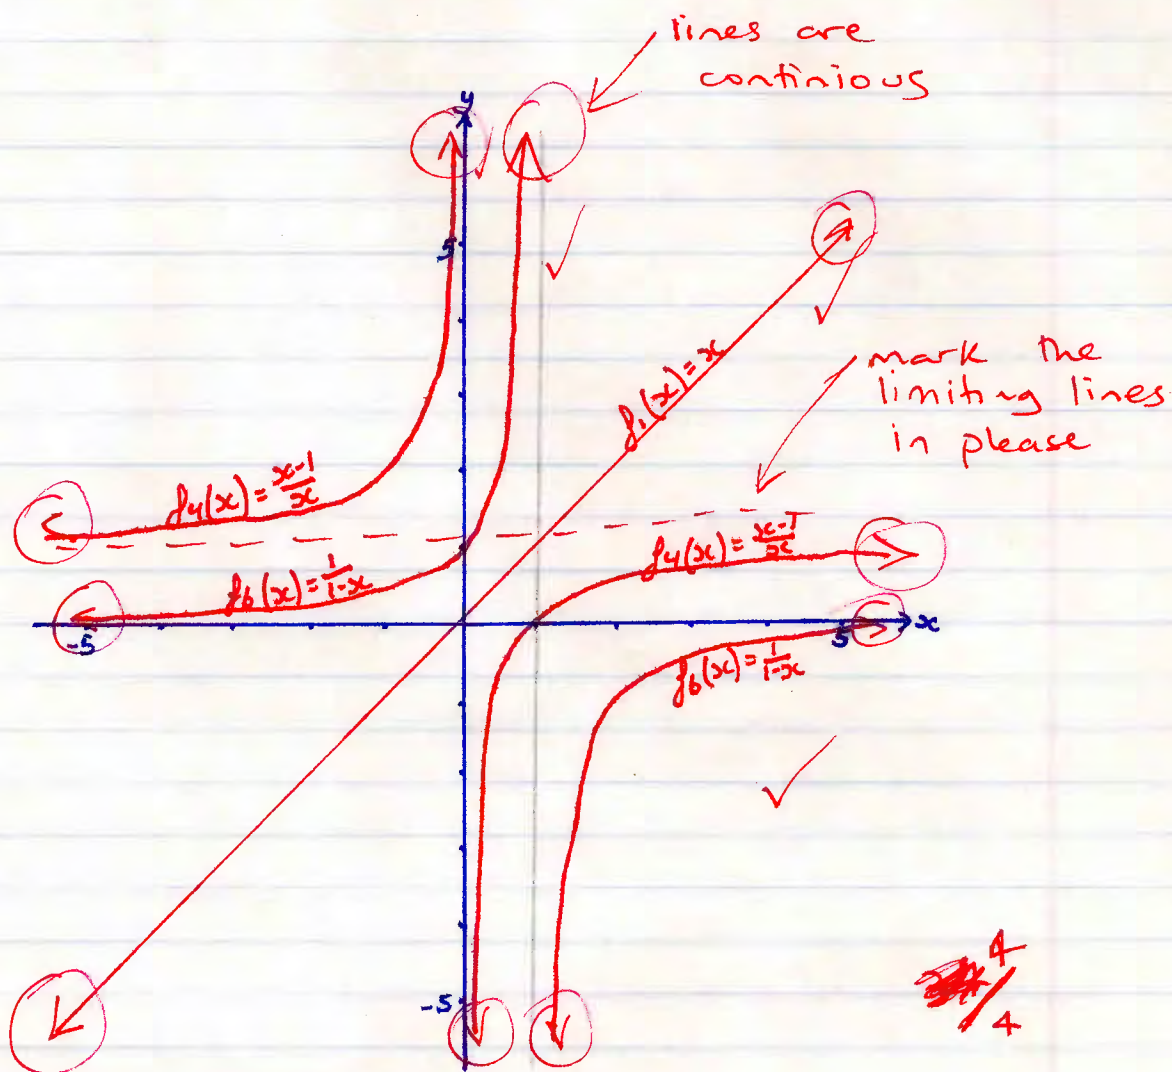 lines are
continious
y
5
f₁(x)=x
mark the
limiting lines
in please
f₄(x)=x-1/x
f₄(x)=x-1/x
f₆(x)=1/1-x
-5
5
x
f₆(x)=1/1-x
-5
4/4